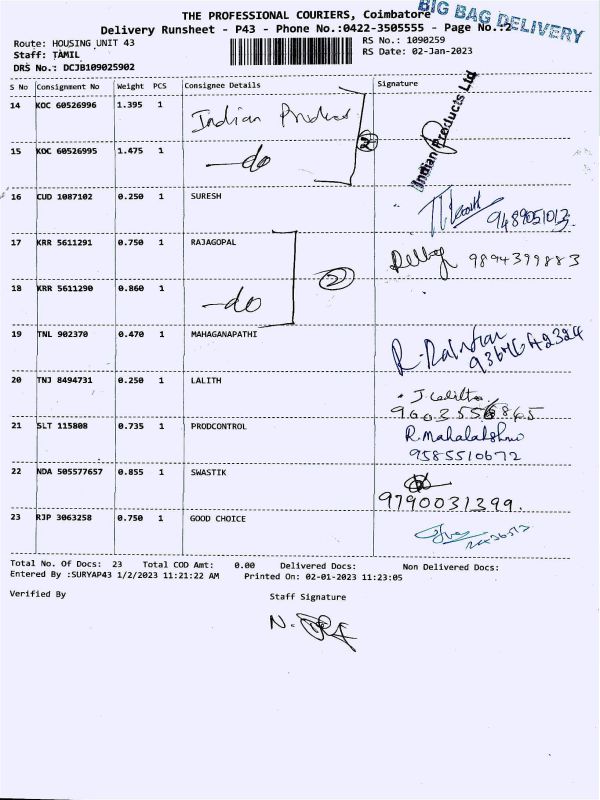 BIG BAG DELIVERY
THE PROFESSIONAL COURIERS, Coimbatore
Delivery Runsheet - P43 - Phone No.:0422-3505555 - Page No.:2
Route: HOUSING UNIT 43
Staff: TAMIL
DRS No.: DCJB109025902
RS No.: 1090259
RS Date: 02-Jan-2023
S No Consignment No Weight PCS Consignee Details Signature
14 KOC 60526996 1.395 1 Indian Products
Indian Products Ltd
15 KOC 60526995 1.475 1 —do
2
16 CUD 1087102 0.250 1 SURESH
9489051013
17 KRR 5611291 0.750 1 RAJAGOPAL
9894399883
18 KRR 5611290 0.860 1 —do
2
19 TNL 902370 0.470 1 MAHAGANAPATHI
20 TNJ 8494731 0.250 1 LALITH
J Lalitha
9603556865
21 SLT 115808 0.735 1 PRODCONTROL
R.Mahalakshmi
9585510672
22 NDA 505577657 0.855 1 SWASTIK
9790031399.
23 RJP 3063258 0.750 1 GOOD CHOICE
Total No. Of Docs: 23 Total COD Amt: 0.00 Delivered Docs: Non Delivered Docs:
Entered By :SURYAP43 1/2/2023 11:21:22 AM Printed On: 02-01-2023 11:23:05
Verified By Staff Signature